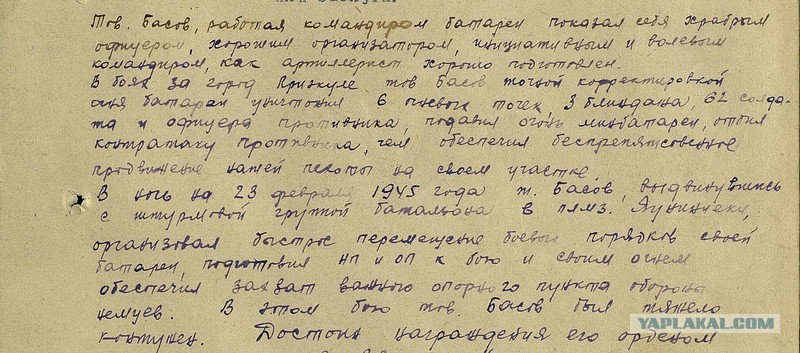 Тов. Басов, работая командиром батареи показал себя храбрым
офицером, хорошим организатором, инициативным и волевым
командиром, как артиллерист хорошо подготовлен.
В боях за город Приекуле тов Басов точной корректировкой
огня батареи уничтожил 6 огневых точек, 3 блиндажа, 62 солда-
та и офицера противника, подавил огонь минбатареи, отбил
контратаку противника, чем обеспечил беспрепятственное
продвижение нашей пехоты на своем участке
В ночь на 23 февраля 1945 года т. Басов, выдвинувшись
с штурмовой группой батальона в
организовал быстрое перемещение боевых порядков своей
батареи, подготовил НП и ОП к бою и своим огнем
обеспечил захват важного опорного пункта обороны
немцев. В этом бою тов. Басов был тяжело
контужен. Достоин награждения его орденом
YAPLAKAL.COM